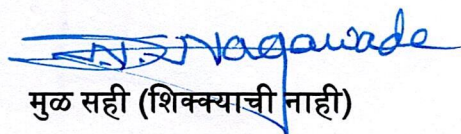 N.S. Nagawade
मुळ सही (शिक्क्याची नाही)